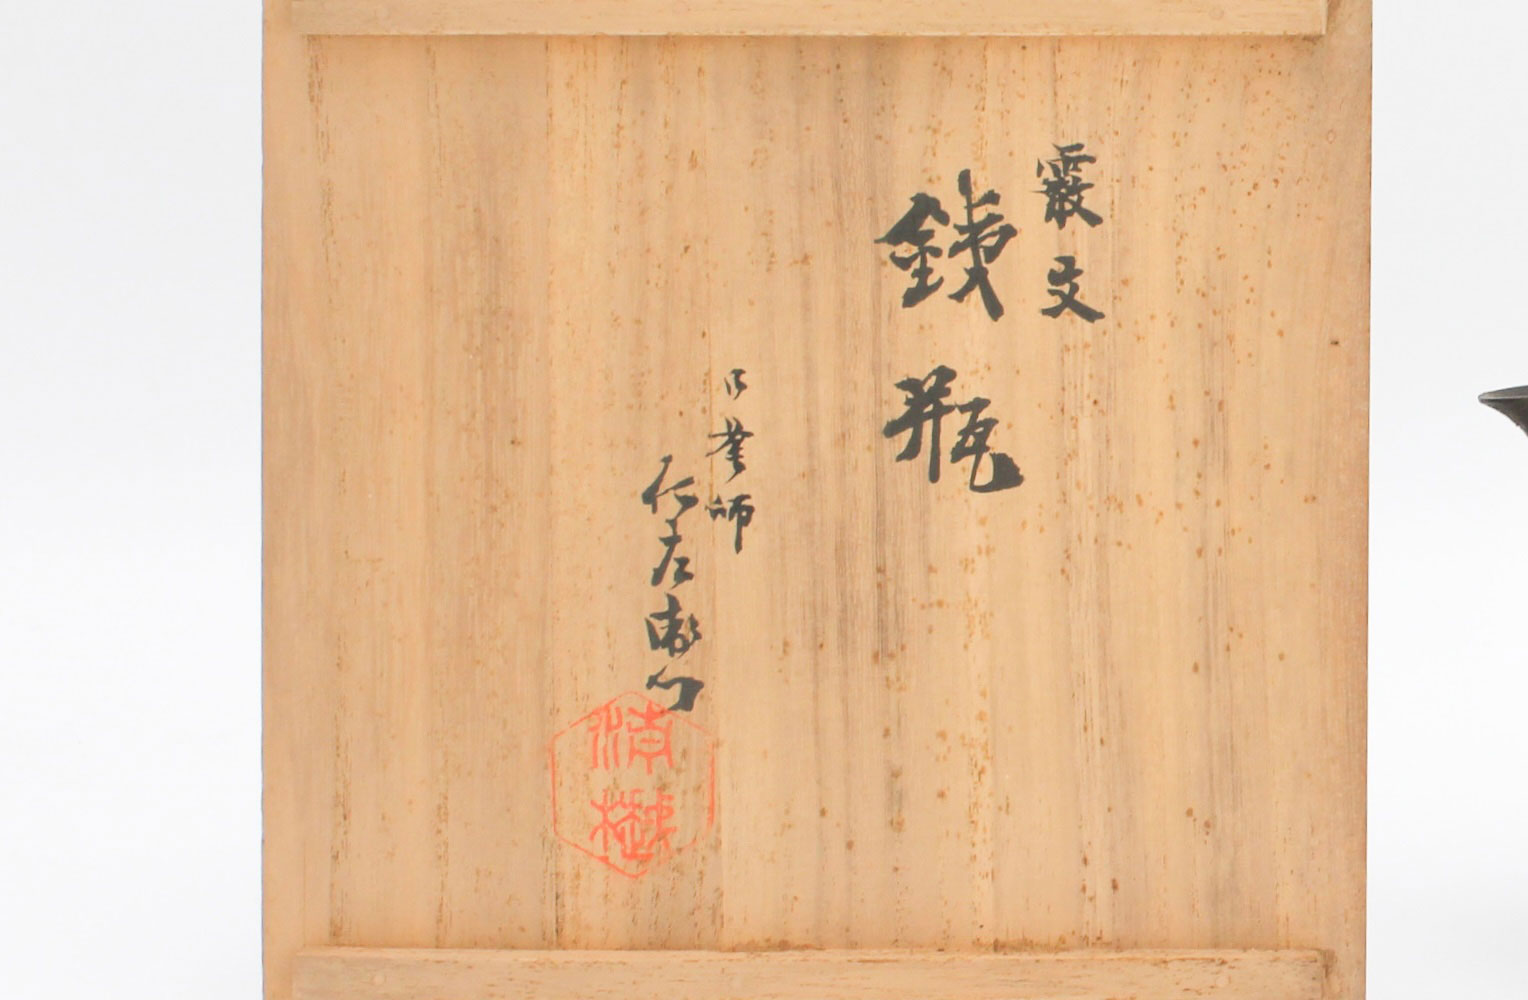 霰文
鉄瓶
御釜師
仁左衛門